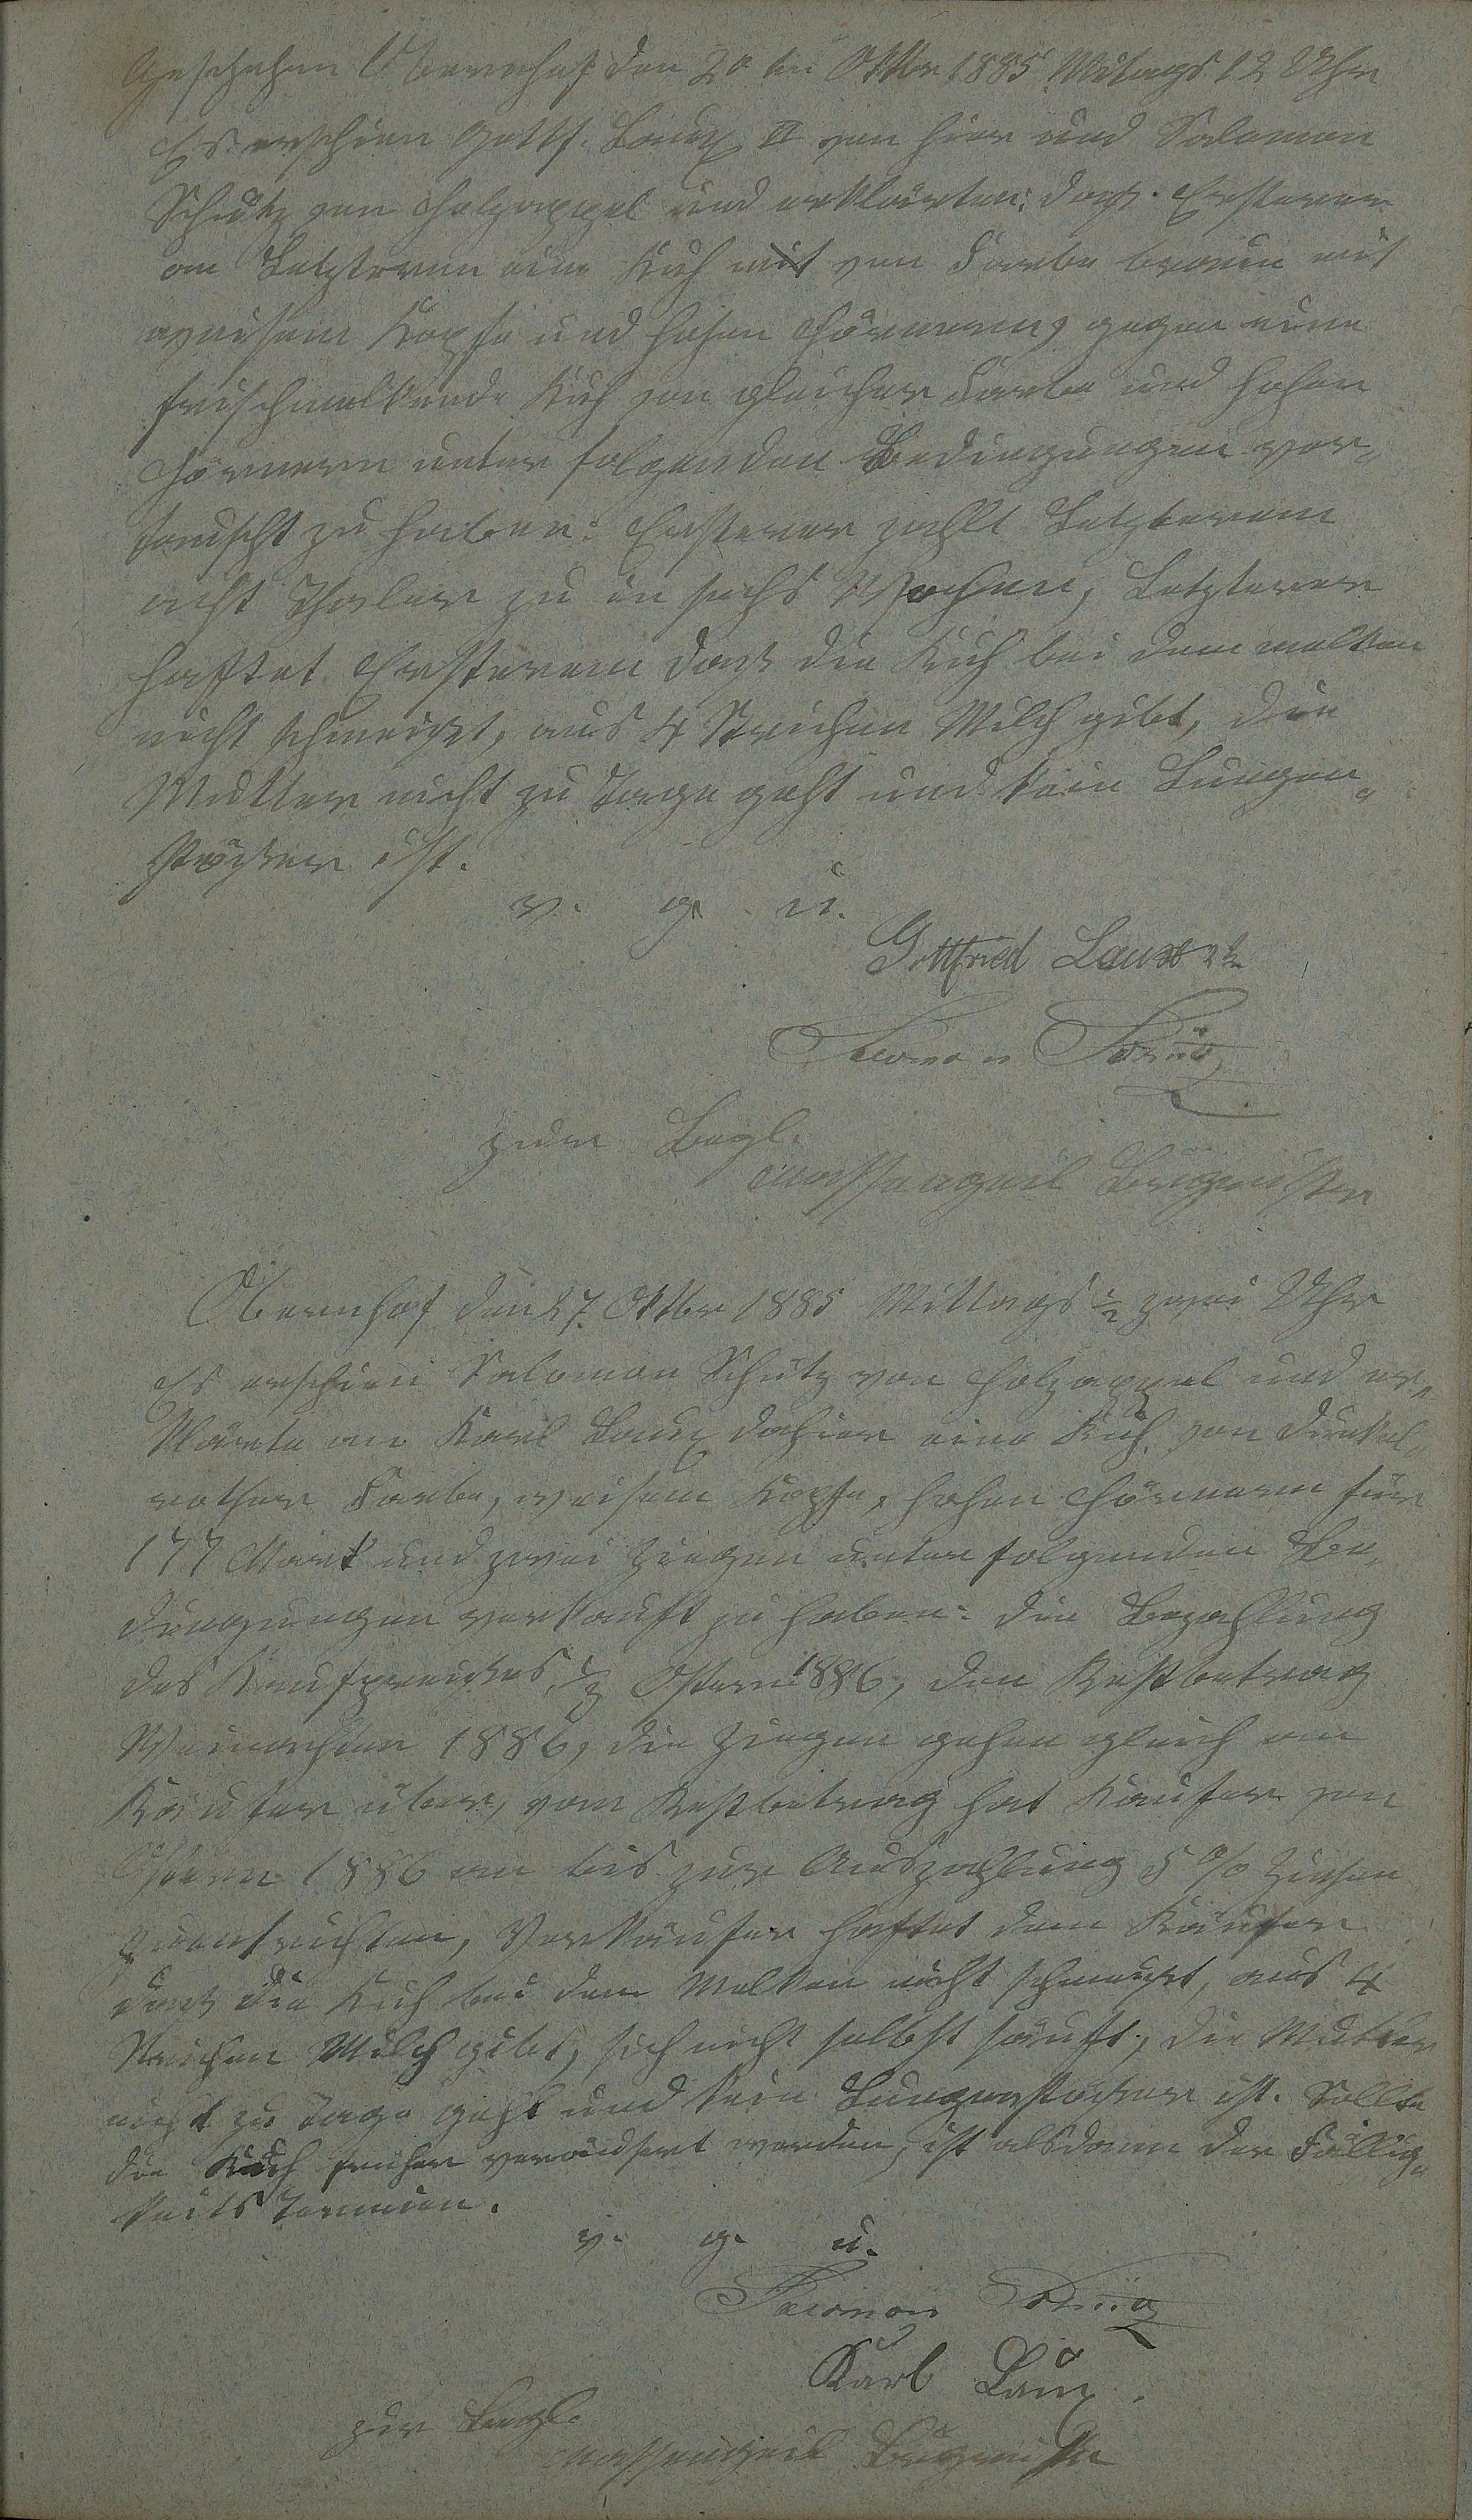 Geschehen Obernhof den 20ten Oktbr 1885 Mitags 12 Uhr
Es erschien Gottf. Laux II von hier und Salomon
Schütz von Holzappel und erklärten: daß Ersterer
an Letzteren eine Kuh mit von Farbe braun mit
weisem Kopfe und hohen Hörnern, gegen eine
frischmelkende Kuh von gleicher Farbe und hohen
Hörnern unter folgenden Bedingungen ver-
tauscht zu haben: Ersterer zahlt Letzterem
acht Thaler zu in sechs Wochen, Letzterer
haftet Ersterem daß die Kuh bei dem melken
nicht schmeißt, aus 4 Strichen Milch gibt, die
Mutter nicht zu Tage geht und kein Lungen-
stößer ist.
v. g. u.
Gottfried Laux 2te
Salomon Schütz
zur Begl.
Massengeil Bürgmister
Obernhof den 27. Oktbr 1885 Mittags ½ zwei Uhr
Es erschien Salomon Schütz von Holzappel und er-
klärte an Karl Laux dahier eine Kuh von dunkel-
rother Farbe, weisem Kopfe, hohen Hörnern für
177 Mark und zwei Ziegen unter folgenden Be-
dingungen verkauft zu haben: die Bezahlung
des Kaufpreises, Ostern 1886, den Restbetrag
Weinachten 1886, die Ziegen gehen gleich an
Käufer über, vom Restbetrag hat Käufer von
Ostern 1886 an bis zur Auszahlung 5 % Zinsen
zuentrichten, Verkäufer haftet dem Käufer
daß die Kuh bei dem Melken nicht schmeißt, aus 4
Strichen Milch gibt, sich nicht selbst säuft, die Mutter
nicht zu Tage geht und kein Lungenstößer ist. Sollte
die Kuh früher veräusert werden, ist alsdann der Fällig-
keits Termin.
v. g. u.
Salomon Schütz
Karl Laux.
zur Begl.
Massengeil Bürgmister